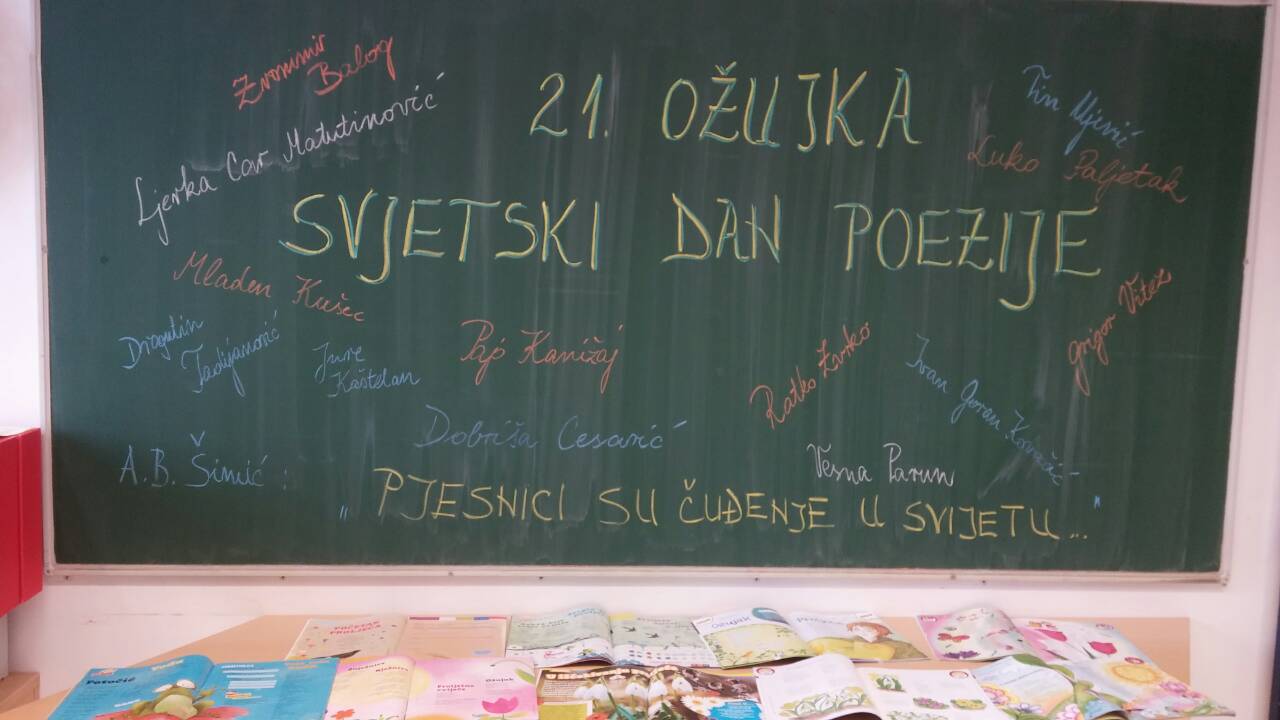 Zvonimir
Balog
21. OŽUJKA
Tin Ujević
Luko Paljetak
Ljerka Car Matutinović
SVJETSKI DAN POEZIJE
Mladen Kušec
Grigor Vitez
Dragutin
Tadijanović
Jure
Kaštelan
Pajo Kanižaj
Ratko Zvrko
Ivan Goran Kovačić
Dobriša Cesarić
Vesna Parun
A.B. Šimić:
„PJESNICI SU ČUĐENJE U SVIJETU..."
POČETAK
PROLJEĆA
Ožujak
Potočić
Ožujak